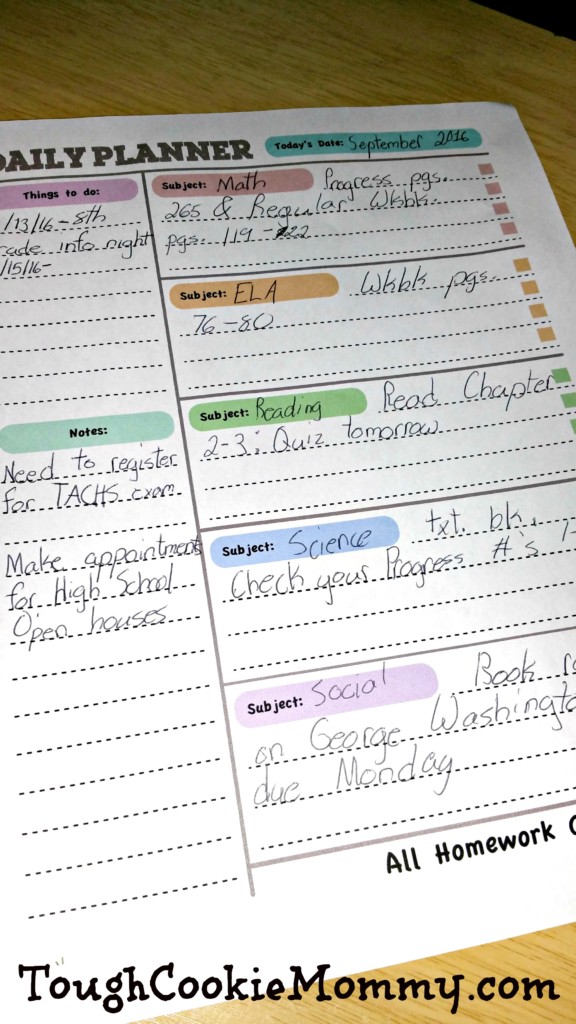 DAILY PLANNER
Today's Date: September 2016
Things to do:
/13/16-8th
rade info night
/15/16-
Notes:
Need to register
for TACHS exam
Make appointments
for High School
Open houses
Subject: Math Progress pgs.
265 & Regular Wkbk.
pgs. 119-122
Subject: ELA Wkbk pgs.
76-80
Subject: Reading Read Chapter
2-3; Quiz tomorrow
Subject: Science txt. bk.
Check your Progress #'s 1-
Subject: Social Book
on George Washingt
due Monday
All Homework
ToughCookieMommy.com